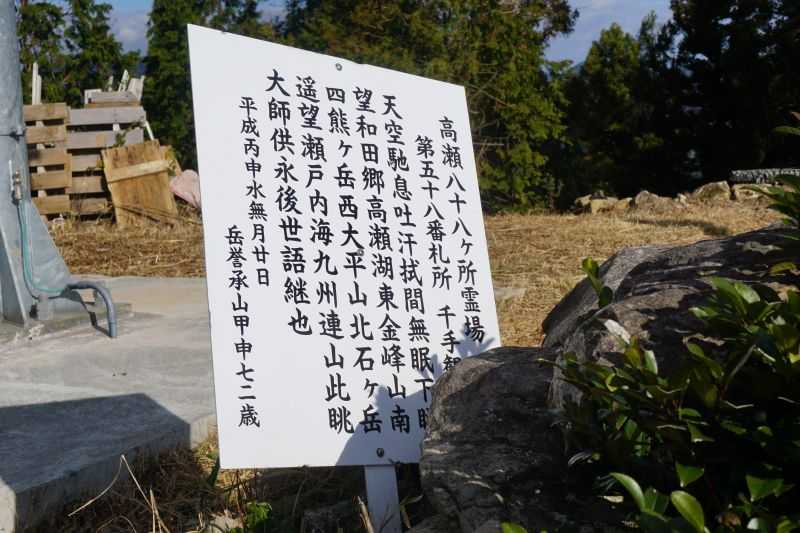 高瀬八十八ヶ所霊場
第五十八番札所 千手
天空馳息吐汗拭間無眠下
望和田郷高瀬湖東金峰山南
四熊ヶ岳西大平山北石ヶ岳
遥望瀬戸内海九州連山此眺
大師供永後世語継也
平成丙申水無月廿日
岳誉承山甲申七二歳